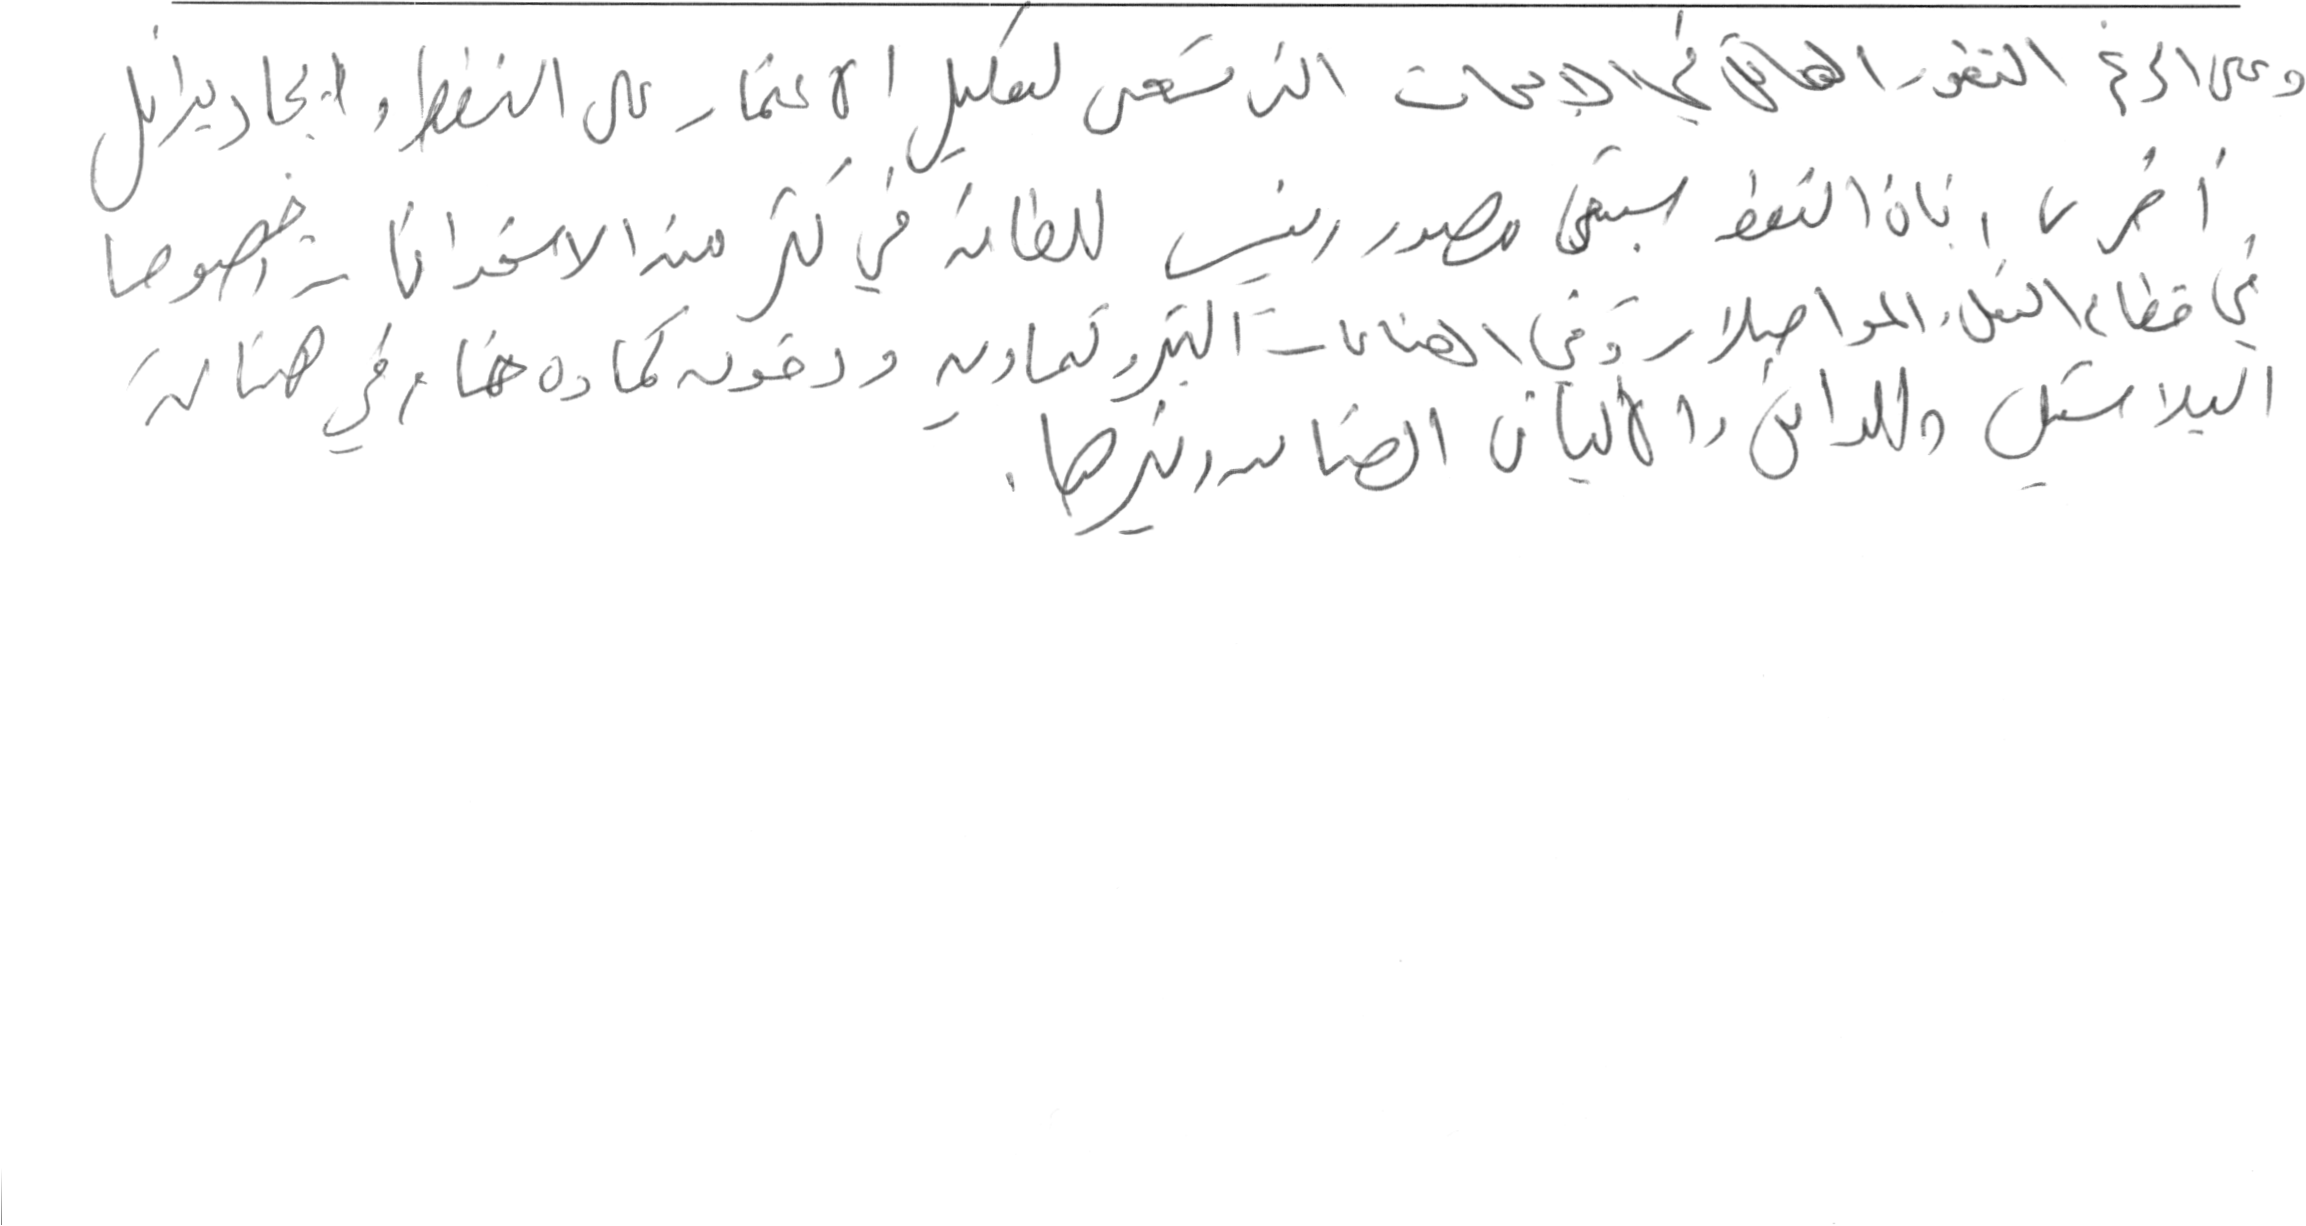 وعلى الرغم التطور الهائل في الابحاث التي تسعى لتقليل الاعتماد على النفط وايجاد بدائل
أخرى فان النفط سيبقى مصدر رئيسي للطاقة في كثير من الاستخدامات خصوصا
في قطاع النقل والمواصلات وفي الصناعات البتروكماوية ودخوله كماده خام في صناعة
البلاستيك والمدائن والألياف الصناعيه وغيرها.